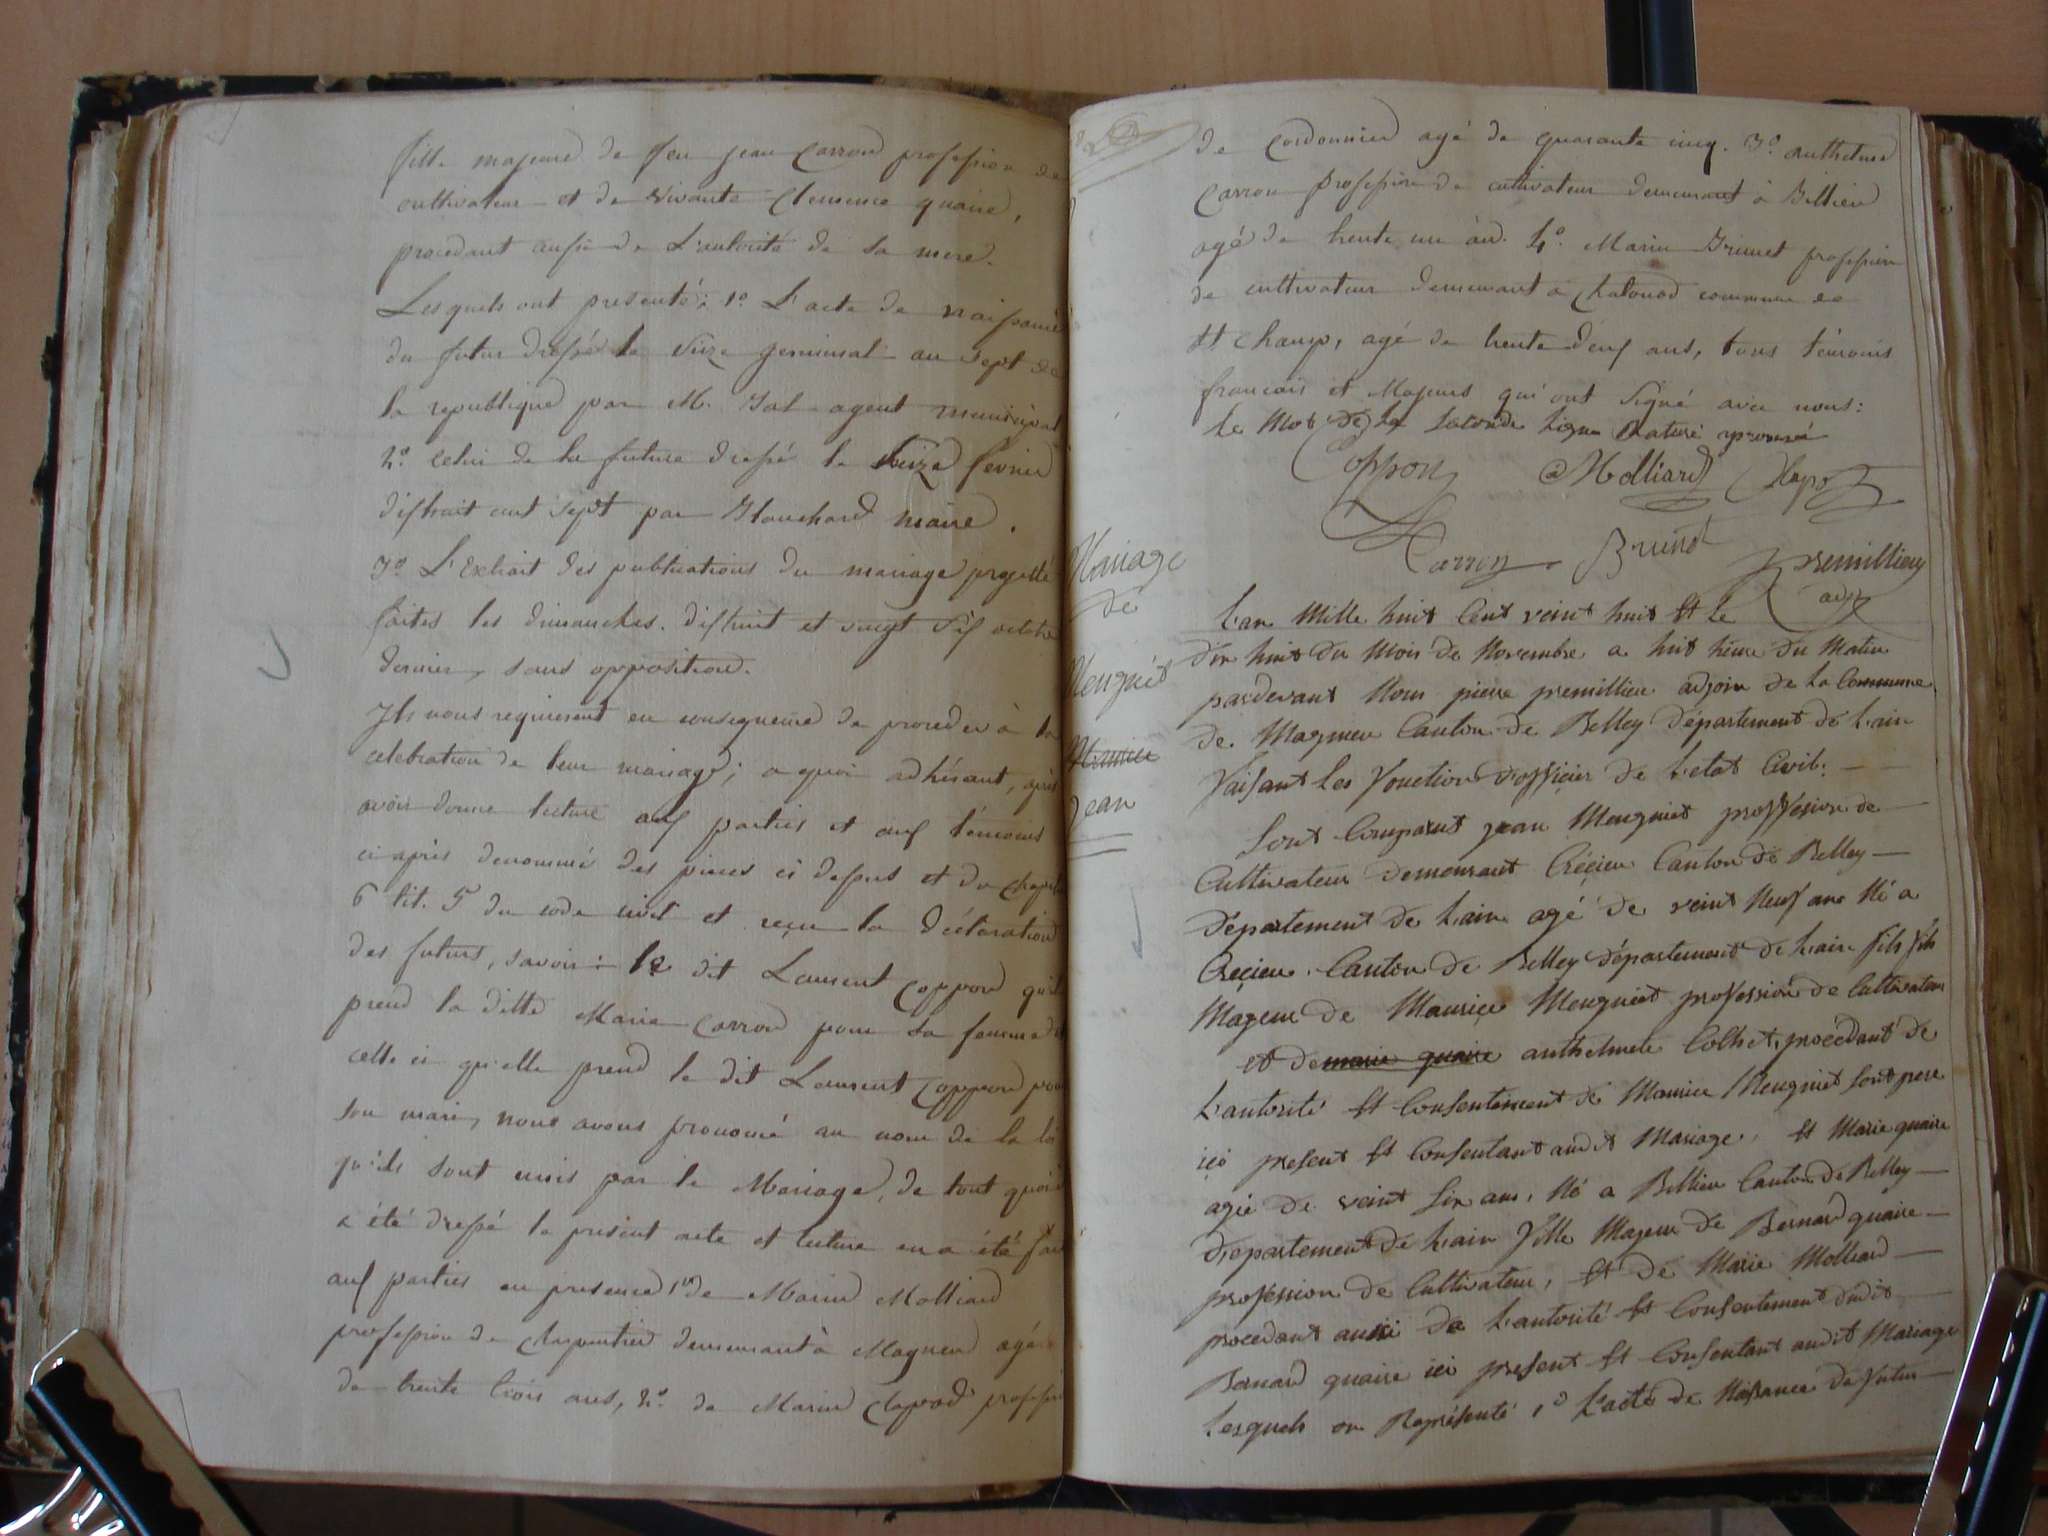 fille majeure de feu jean Carron profession de
cultivateur et de vivante Clemence quaire,
procedant aussi de L'autorité de sa mere.
Lesquels ont presenté: 1º L'acte de naissance
du futur dressé le seize germinal an sept de
la republique par M. Jal agent municipal
2º celui de la future dressé le seize fevrier
dixhuit cent sept par Blanchard maire.
3º L'Extrait des publications du mariage projetté
faites les dimanches. dixhuit et vingt six octobre
dernier, sans opposition.
Ils nous requierent en consequence de proceder à la
celebration de leur mariage; a quoi adhérant, après
avoir donné lecture aux parties et aux témoins
ci après denommés des pieces ci dessus et du chapitre
6 tit. 5 du code civil et reçu la déclaration
des futurs, savoir: le dit Laurent Coppon qu'il
prend la ditte Marie Carron pour sa femme et
celle ci qu'elle prend le dit Laurent Coppon pour
son mari, nous avons prononcé au nom de la loi
qu'ils sont unis par le Mariage, de tout quoi
a été dressé le present acte et lecture en a été fait
aux parties en presence 1º de Marin Molliard
profession de charpentier demeurant à Magneu agé
de trente trois ans, 2º. de Marin Clapod profession
de Cordonnier agé de quarante cinq. 3º. anthelme
Carron profession de cultivateur demeurant à Billieu
agé de trente un an. 4º. Marin Brunet profession
de cultivateur demeurant à Chatonod commune de
St Champ, agé de trente deux ans, tous témoins
francais et Majeurs qui ont signé avec nous:
Le Mot de la seconde ligne Raturé approuvé
Coppon Molliard Clapod
Carron Brunet premillieu
adj
Mariage
de
Meugniet
Maurice
Jean
L'an Mille huit Cent veint huit Et le
dix huit du Mois de Novembre a huit heure du Matin
pardevant Nous pierre premillieu adjoin de La Commune
de Magnieu Canton de Belley Département de L'ain
Faisant Les Fonction d'officier de L'etat Civil.
Sont Comparut jean Meugniet proffesion de
Cultivateur demeurant Créçieu Canton de Belley
Département de L'ain agé de veint Neuf ans Né a
Creçieu Canton de Belley Département de L'ain fils fils
Mageur de Maurice Meugniet profession de Cultivateur
et de marie quaire anthelmete Colhet, procédant de
L'autorité Et Consentement de Maurice Meugniet sont pere
içi present Et Consentant audit Mariage, Et Marie quaire
agée de veint six ans, Né a Billieu Canton de Belley
Département de L'ain Fille Mageur de Bernard quaire
profession de Cultivateur, Et de Marie Molliard
procedant aussi de L'autorité Et Consentement dudit
Bernard quaire ici present Et Consentant audit Mariage
Lesquels on Représenté 1º L'acte de Naisance du Futur